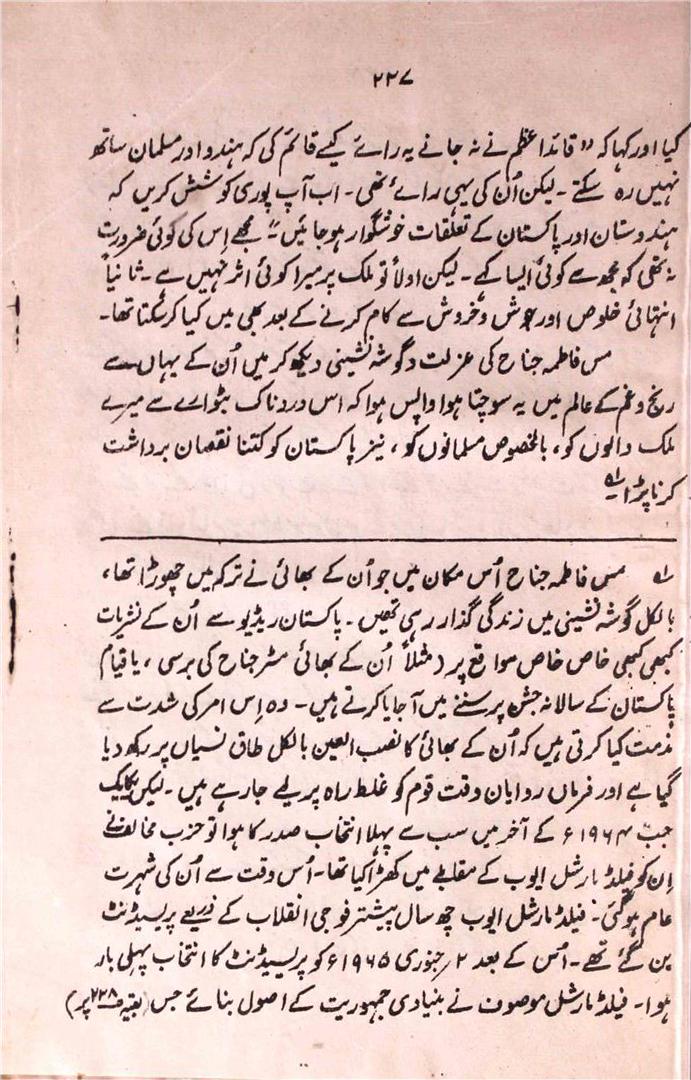 ۲۲۷
گیا اور کہا کہ "قائد اعظم نے نہ جانے یہ رائے کیسے قائم کی کہ ہندو اور مسلمان ساتھ
نہیں رہ سکتے۔ لیکن اُن کی یہی رائے تھی۔ اب آپ پوری کوشش کریں کہ
ہندوستان اور پاکستان کے تعلقات خوشگوار ہو جائیں"۔ مجھے اِس کی کوئی ضرورت
نہ تھی کہ مجھ سے کوئی ایسا کہے۔ لیکن اولاً تو ملک پر میرا کوئی اثر نہیں ہے۔ ثانیاً
انتہائی خلوص اور جوش و خروش سے کام کرنے کے بعد بھی میں کیا کر سکتا تھا۔
مس فاطمہ جناح کی عزلت و گوشہ نشینی دیکھ کر میں اُن کے یہاں سے
رنج و غم کے عالم میں یہ سوچتا ہوا واپس ہوا کہ اس دردناک بٹوارے سے میرے
ملک والوں کو، بالخصوص مسلمانوں کو، نیز پاکستان کو کتنا نقصان برداشت
کرنا پڑا۔ ؎۱
؎۱ مس فاطمہ جناح اُس مکان میں جو اُن کے بھائی نے ترکہ میں چھوڑا تھا،
بالکل گوشہ نشینی میں زندگی گذار رہی تھیں۔ پاکستان ریڈیو سے اُن کے نشریات
کبھی کبھی خاص خاص مواقع پر (مثلاً اُن کے بھائی مسٹر جناح کی برسی، یا قیام
پاکستان کے سالانہ جشن پر سننے میں آ جایا کرتے ہیں۔ وہ اِس امر کی شدت سے
مذمت کیا کرتی ہیں کہ اُن کے بھائی کا نصب العین بالکل طاق نسیاں پر رکھ دیا
گیا ہے اور فرماں روایان وقت قوم کو غلط راہ پر لیے جا رہے ہیں۔ لیکن یکایک
جب ۱۹۶۴ء کے آخر میں سب سے پہلا انتخاب صدر کا ہوا تو حزب مخالف نے
اِن کو فیلڈ مارشل ایوب کے مقابلے میں کھڑا کیا تھا۔ اُس وقت سے اُن کی شہرت
عام ہو گئی۔ فیلڈ مارشل ایوب چھ سال پیشتر فوجی انقلاب کے ذریعے پریسیڈنٹ
بن گئے تھے۔ اُس کے بعد ۲/جنوری ۱۹۶۵ء کو پریسیڈنٹ کا انتخاب پہلی بار
ہوا۔ فیلڈ مارشل موصوف نے بنیادی جمہوریت کے اصول بنائے جس (بقیہ ص۲۲۸ پر)